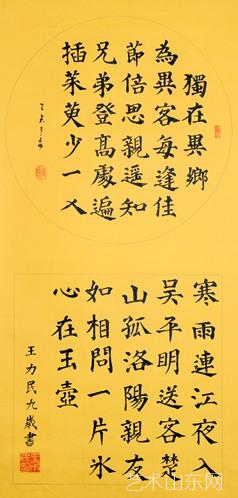 獨在異鄉
為異客每逢佳
節倍思親遥知
兄弟登高處遍
插茱萸少一人
寒雨連江夜入
吳平明送客楚
山孤洛陽親友
如相問一片氷
心在玉壺
王力民九歲書
艺术山东网